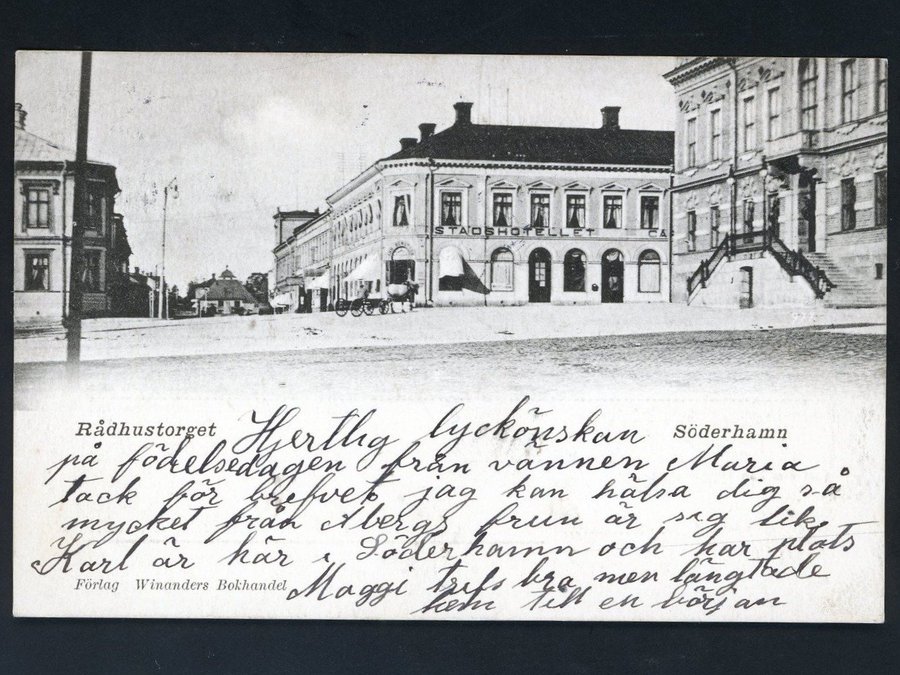 STADSHOTELLET CA
Rådhustorget
Söderhamn
Hjertlig lyckönskan
på födelsedagen från vännen Maria
tack för brefvet jag kan hälsa dig så
mycket från Åbergs frun är sig lik
Karl är här i Söderhamn och har plats
Maggi trifs bra men längtade
hem till en början
Förlag Winanders Bokhandel